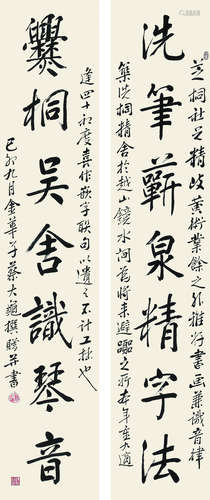 芝桐社兄精岐黃術業餘之雅好書畫兼識音律
洗筆蘄泉精字法
築洗桐精舍於越山鏡水間為將來避囂之所本年重九適
逢四十初度喜作嵌字聯句以遺之不計工拙也
爨桐吳舍識琴音
己卯九月金華子蔡大撰賸并書